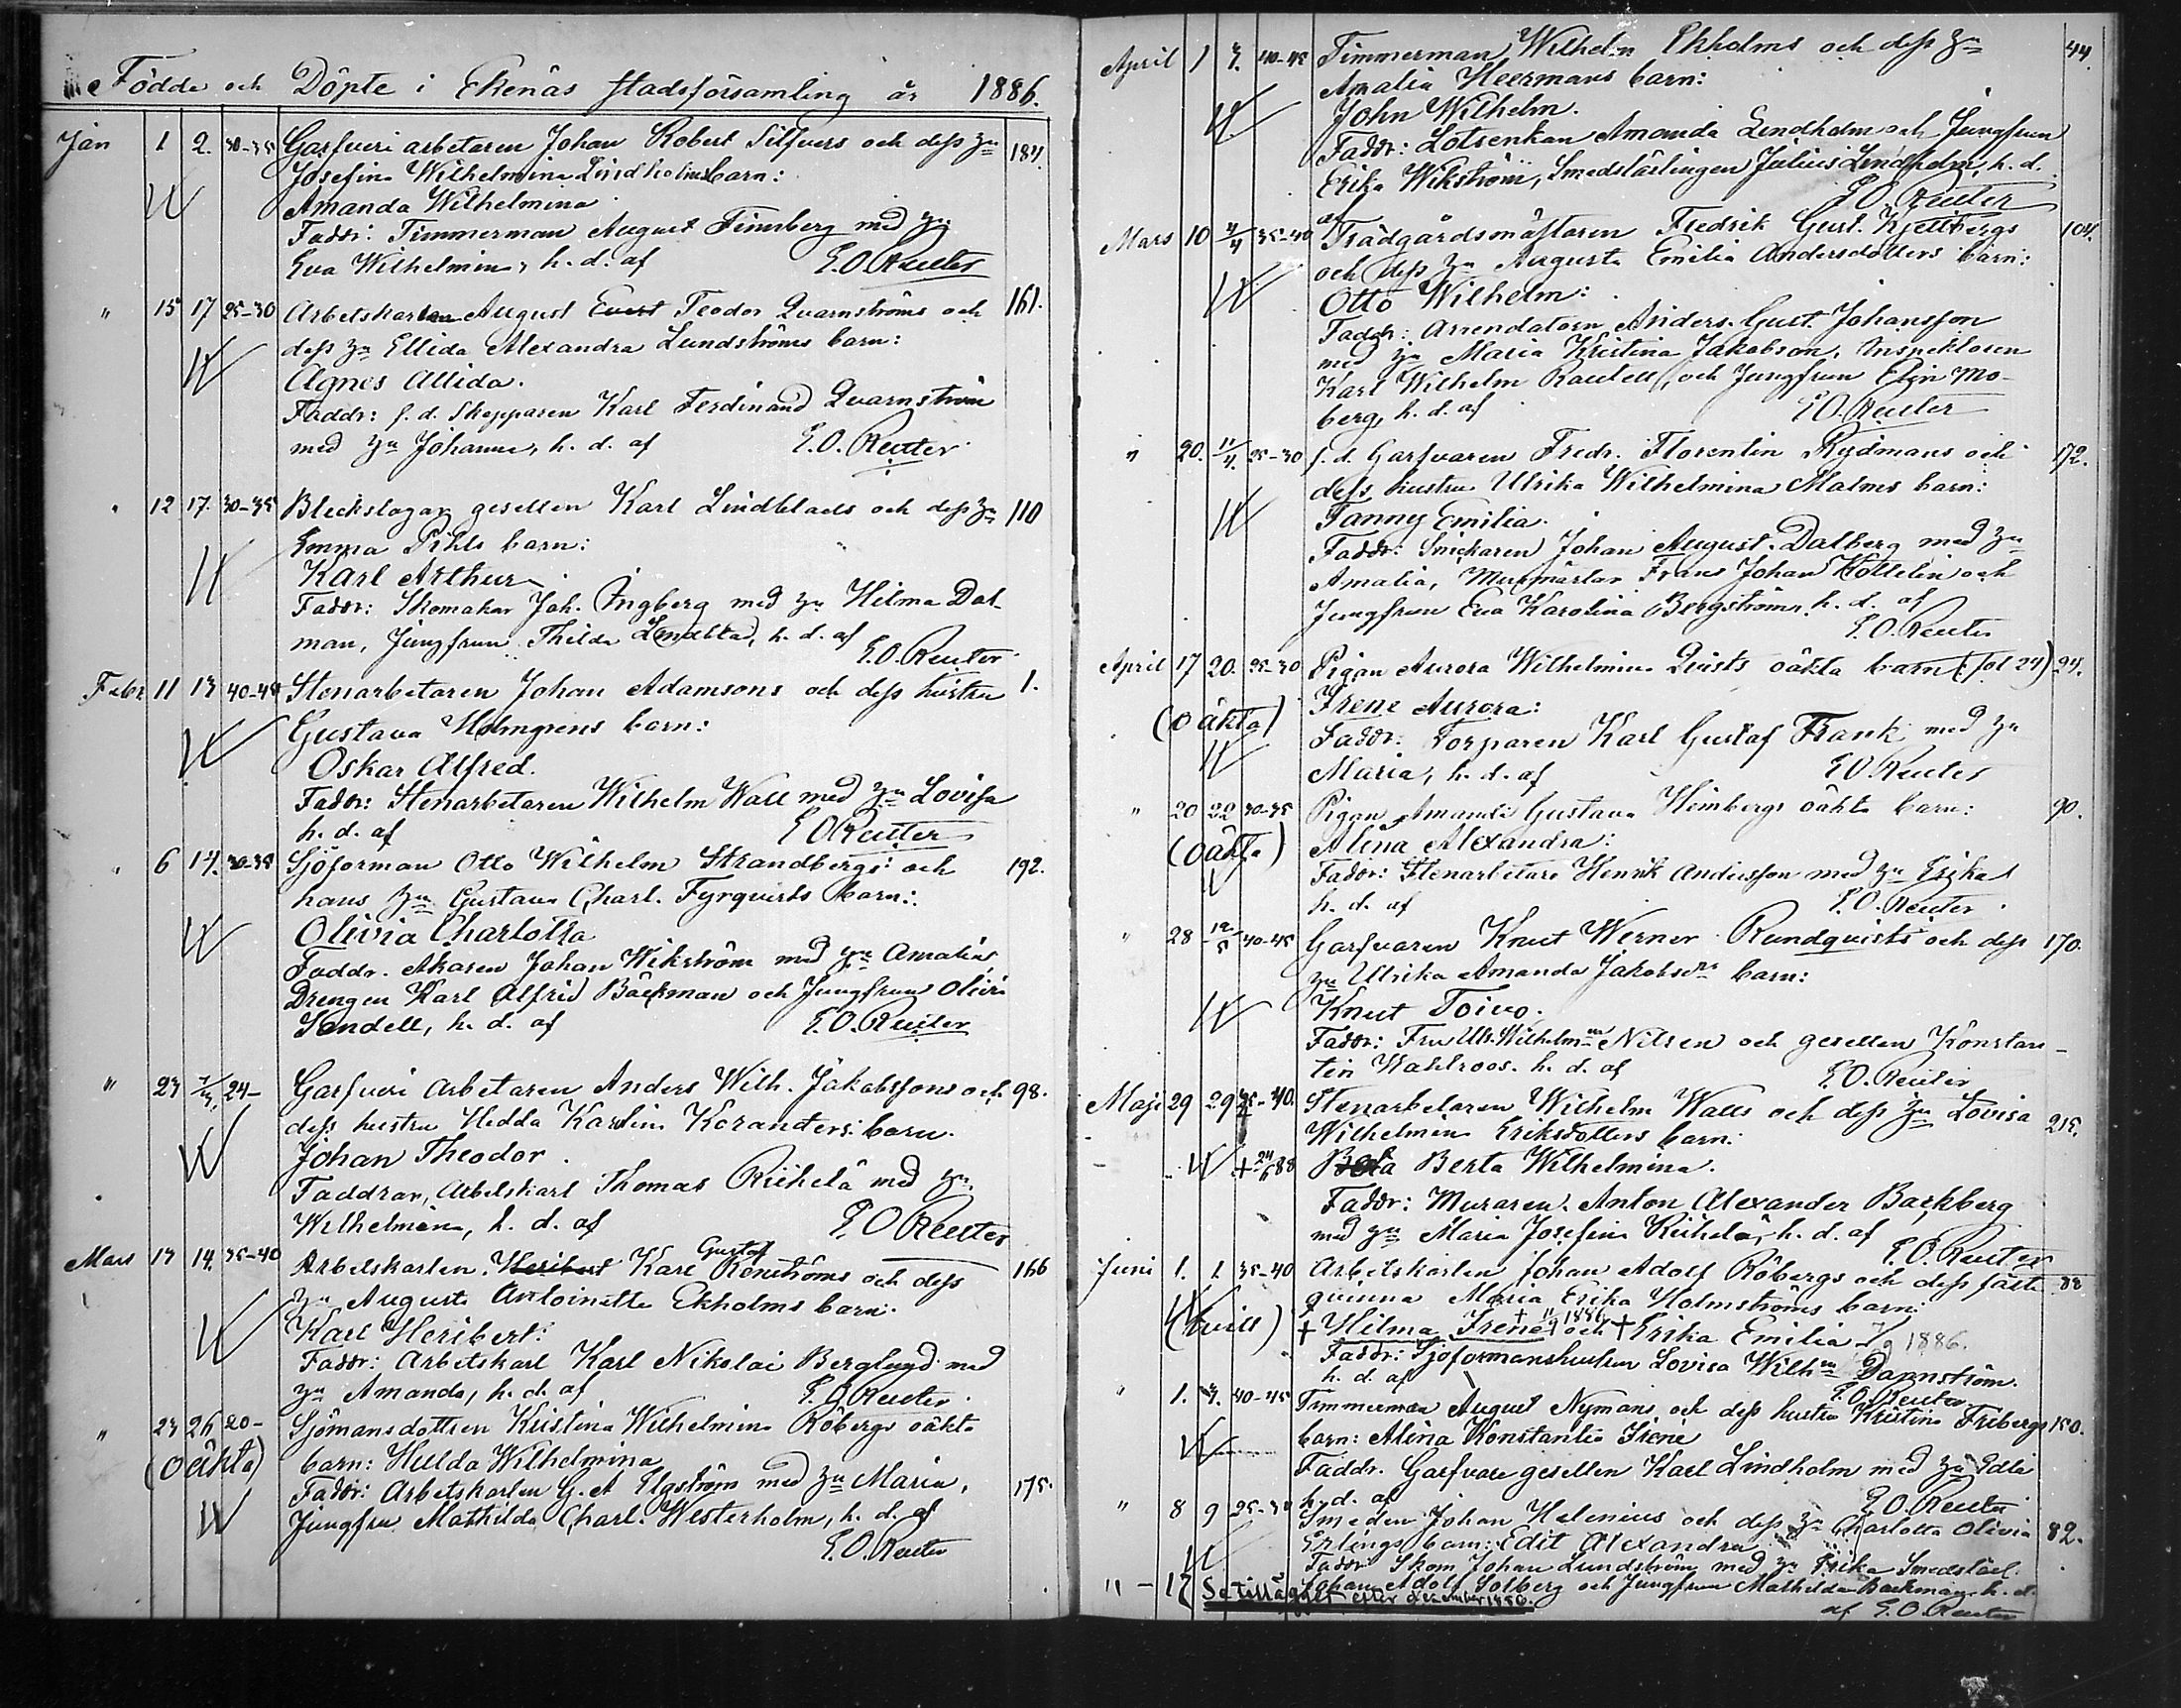 Födde och Döpte i Ekenäs stadsförsamling år 1886.
Jan 1 2. 30-35 Garfveri arbetaren Johan Robert Silfvers och dess hu 184
Josefina Wilhelmina Lindholms barn:
Amanda Wilhelmina
Faddr: Timmerman August Finnberg med hu
Eva Wilhelmina, h. d. af E.O. Reuter
" 15 17 25-30 Arbetskarlen August Evert Teodor Qvarnströms och 161.
dess hu Ellida Alexandra Lundströms barn:
Agnes Allida.
Faddr: f. d. Skepparen Karl Ferdinand Qvarnström
med hu Johanna, h. d. af E.O. Reuter
" 12 17. 30-35 Bleckslagar gesellen Karl Lindblads och dess hu 110
Emma Pihls barn:
Karl Arthur
Faddr: Skomakar Joh. Ingberg med hu Hilma Dal-
man, Jungfrun Thilda Lindblad, h. d. af
E.O. Reuter
Febr 11 13 40-45 Stenarbetaren Johan Adamsons och dess hustru 1.
Gustava Holmgrens barn:
Oskar Alfred.
Faddr: Stenarbetaren Wilhelm Wall med hu Lovisa
h. d. af E O Reuter
" 6 14. 30-35 Sjöforman Otto Wilhelm Strandbergs och 192.
hans hu Gustava Charl. Fyrqvists barn:
Olivia Charlotta
Faddr. Åkaren Johan Wikström med hu Amalia,
Drengen Karl Alfrid Bäckman och Jungfrun Olivia
Sandell, h. d. af E.O. Reuter
" 23 24- Garfveri arbetaren Anders Wilh. Jakobssons och 98.
dess hustru Hedda Karolina Koranders barn.
Johan Theodor.
Faddrar, Arbetskarl Thomas Riihelä med hu
Wilhelmina, h. d. af E. O Reuter
Mars 13 14. 35-40 Arbetskarlen Heribert Karl Gustaf Renströms och dess 166
hu Augusta Antoinetta Ekholms barn:
Karl Heribert:
Faddr: Arbetskarl Karl Nikolai Berglund med
hu Amanda, h. d. af E. O. Reuter
" 23 26 20- Sjömansdottren Kristina Wilhelmina Röbergs oäkta
(Oäkta) barn: Hulda Wilhelmina
Faddr: Arbetskarlen G. A Elgström med hu Maria, 175.
Jungfru Mathilda Charl. Westerholm, h. d. af
E. O. Reuter
April 1 3. 40-45 Timmerman Wilhelm Ekholms och dess hu 44
Amalia Heermans barn:
John Wilhelm.
Faddr: Lotsenkan Amanda Lindholm och Jungfrun
Erika Wikström, Smedslärlingen Julius Lindholm, h. d.
af E.O. Reuter
Mars 10 4/4 35-40 Trädgårdsmästaren Fredrik Gust. Kjellbergs 104.
och dess hu Augusta Emilia Andersdotters barn:
Otto Wilhelm:
Faddr: Arrendatorn Anders Gust. Johansson
med hu Maria Kristina Jakobson, Inspektoren
Karl Wilhelm Rautell, och Jungfrun Elin Mo-
berg, h. d. af E O. Reuter
" 20. 11/4. 25-30 f. d. Garfvaren Fredr. Florentin Rydmans och 172.
dess hustru Ulrika Wilhelmina Malms barn:
Fanny Emilia.
Faddr: Snickaren Johan August Dalberg med hu
Amalia, Murmästar Frans Johan Kollelin och
Jungfrun Eva Karolina Bergström, h. d. af
E. O. Reuter
April 17 20. 25-30 Pigan Aurora Wilhelmina Qvists oäkta barn (: fol 24) 24.
(Oäkta) Irene Aurora:
Faddr: Torparen Karl Gustaf Frank med hu
Maria, h. d. af E O. Reuter
" 20 22 30-35 Pigan Amanda Gustava Heimbergs oäkta barn: 90.
(Oäkta) Alina Alexandra:
Faddr: Stenarbetare Henrik Andersson med hu Erika
h. d. af E. O. Reuter
" 28 12/5 40-45 Garfvaren Knut Werner Rundqvists och dess 170.
hu Ulrika Amanda Jakobsons barn:
Knut Toivo.
Faddr: Fru Ulr. Wilhelmna Nilsen och gesellen Konstan-
tin Wahlroos. h. d. af E. O. Reuter
Maji 29 29 35-40. Stenarbetaren Wilhelm Walls och dess hu Lovisa 215.
Wilhelmina Eriksdotters barn:
+ 24/6 88 Berta Wilhelmina.
Faddr: Muraren Anton Alexander Backberg
med hu Maria Josefina Riihelä, h. d. af
E. O. Reuter
Juni 1. 1 35-40 Arbetskarlen Johan Adolf Röbergs och dess fäste 88
qvinna Maria Erika Holmströms barn:
(tvill) + Hilma Irene + 11/9 1886 och + Erika Emilia 1886.
Faddr: Sjöformanshustrun Lovisa Wilhna Dannström.
h. d. af E. O. Reuter
" 1. 3. 40-45 Timmerman August Nymans och dess hustru Kristina Fribergs 150.
barn: Alina Konstantia Irene
Faddr. Garfvare gesellen Karl Lindholm med hu Edla
h. d. af E. O. Reuter
" 8 9 25-30 Smeden Johan Helenius och dess hu Charlotta Olivia 82.
Erlings barn: Edit Alexandra
Faddr Skom Johan Lundström med hu Erika Smedslärl.
Johan Adolf Solberg och Jungfrun Mathilda Backman h. d.
" - 17 Se tillägget efter december 1886.
af E. O. Reuter